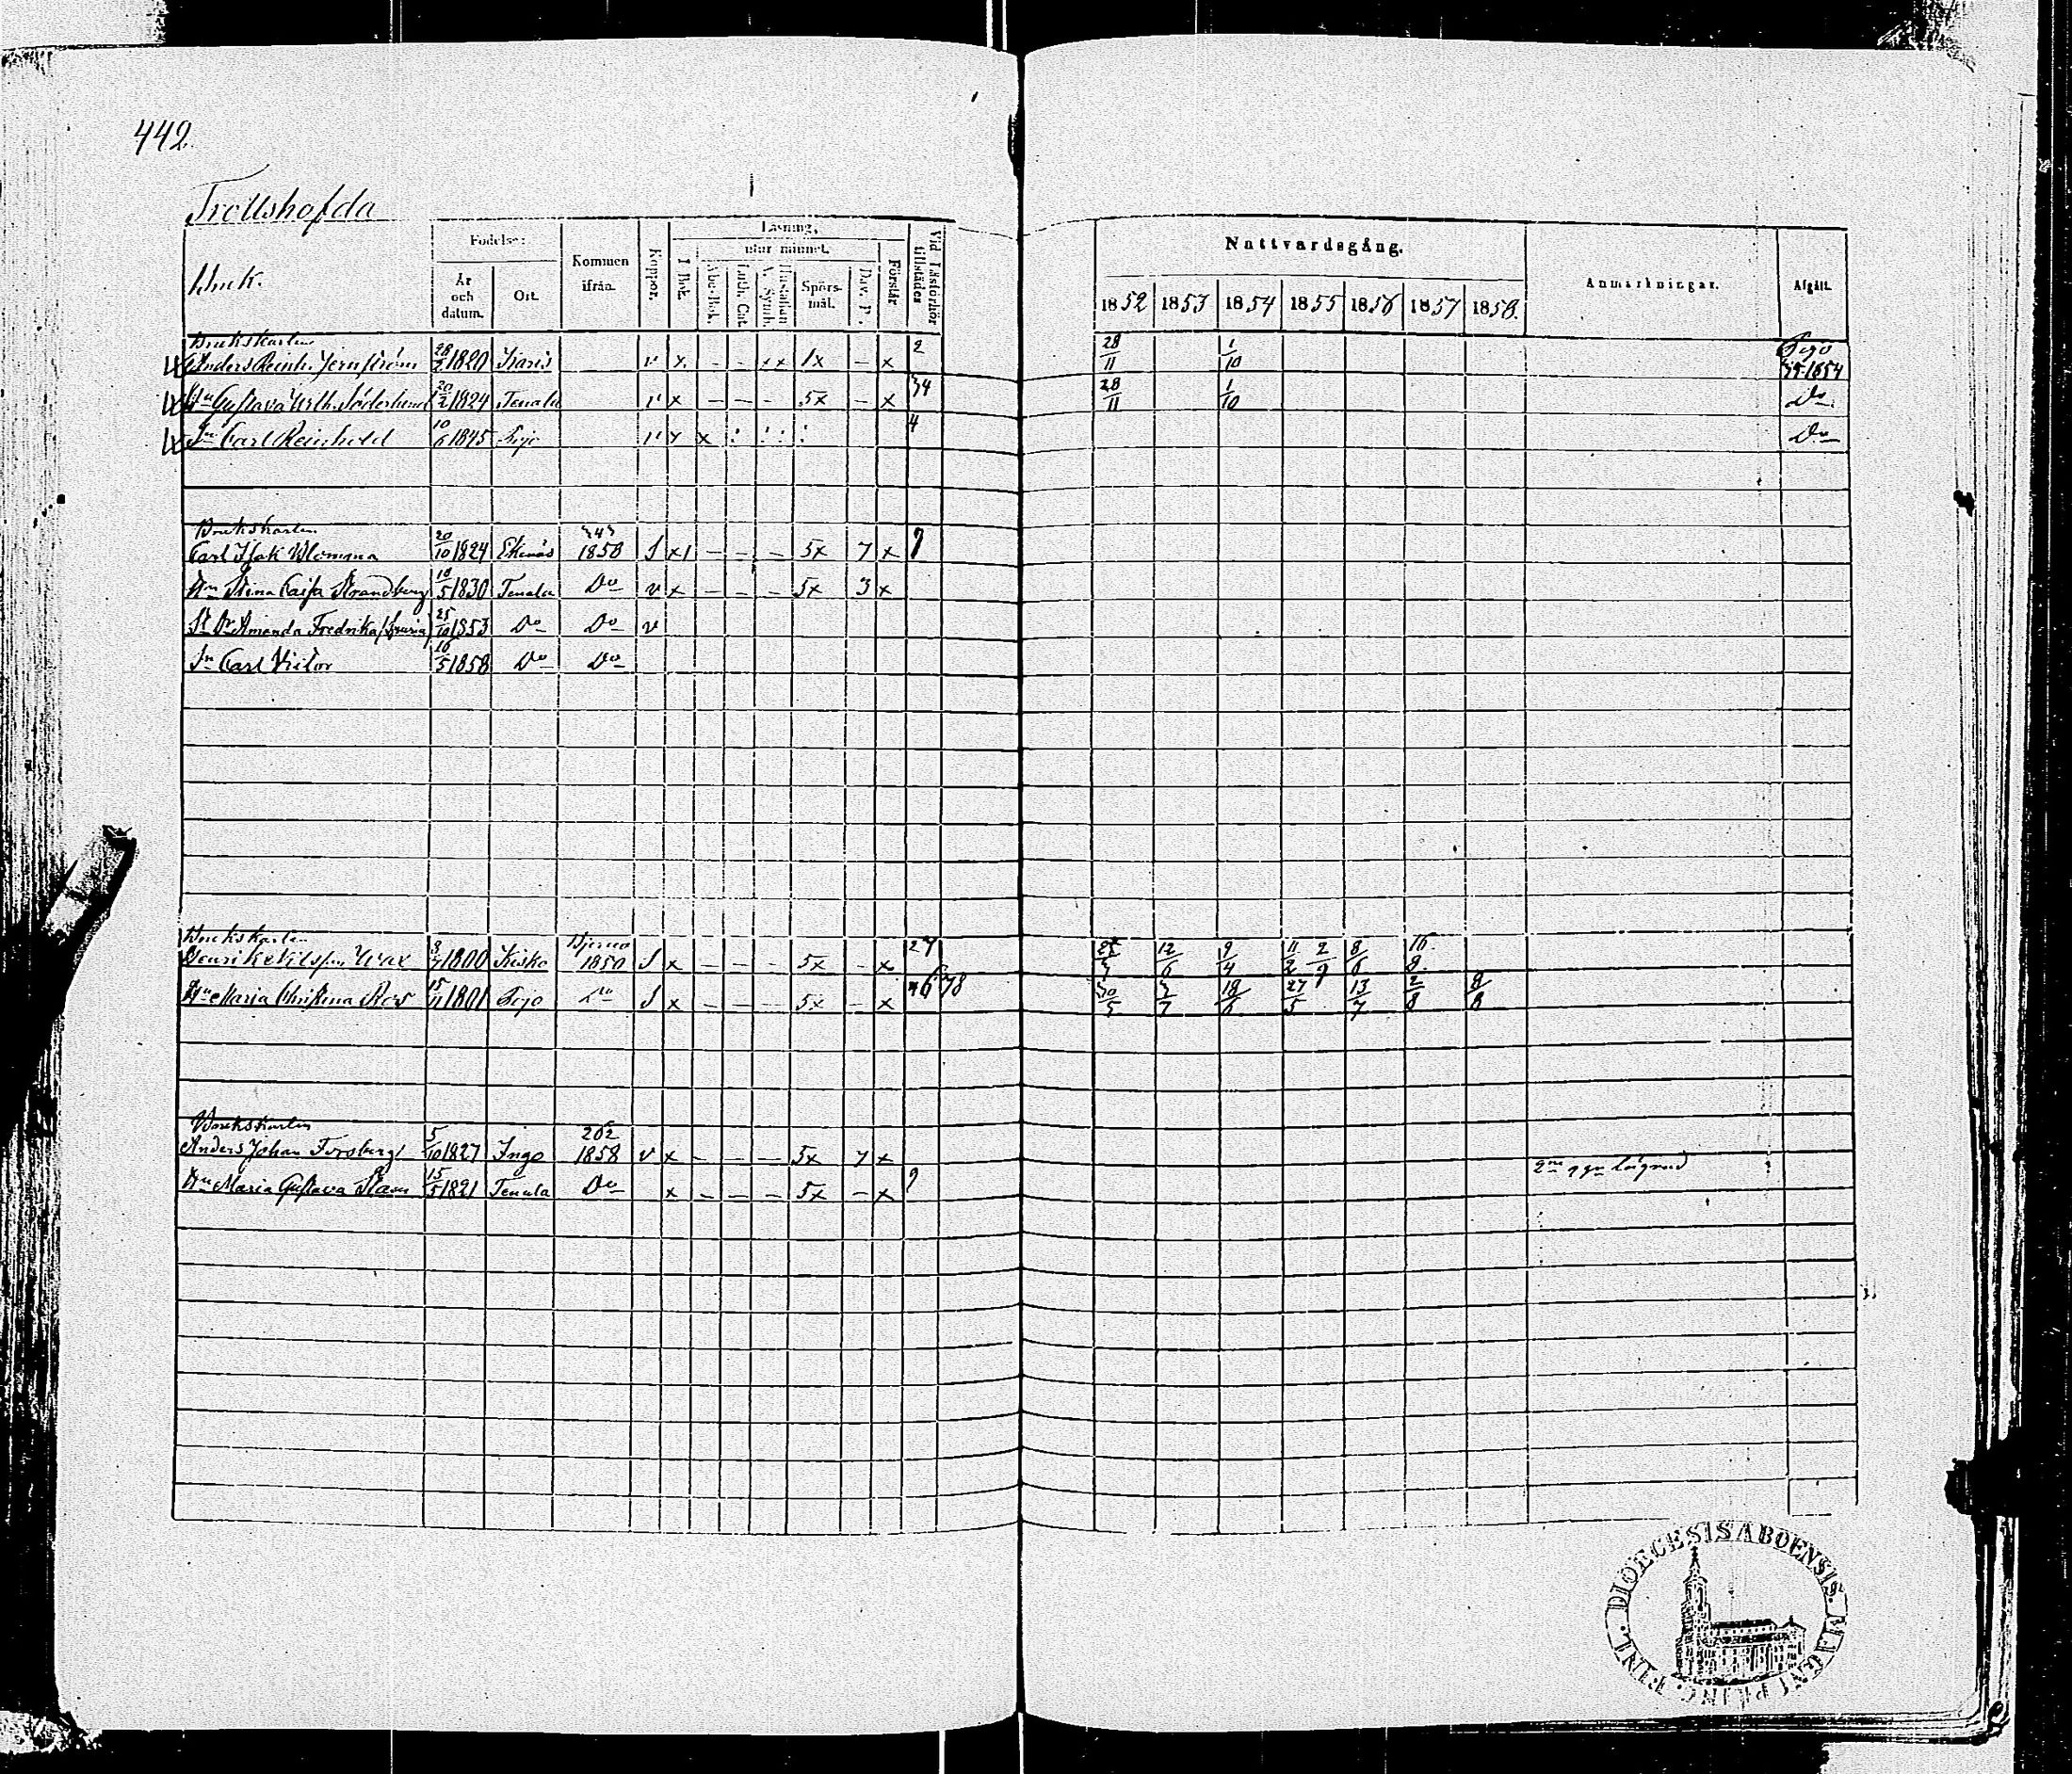 442.
Trollshofda
Bruk.
Födelse:
År och datum.
Ort.
Kommen ifrån.
Koppor.
Läsning,
I Bok.
utur minnet.
Abc-Bok.
Luth. Cat.
A. Symb.
Hustaflan
Spörsmål.
Dav. P.
Förstår
Vid Läsförhör tillstädes
Nattvardsgång.
1852 1853 1854 1855 1856 1857 1858.
Anmärkningar.
Afgått.
Brukskarlen
Anders Reinh. Jernström 28/2 1820 Karis v x - - x x 1x - x 2 28/11 1/10 Pojo 1854
Hu Gustava Wilh. Söderlund 20/2 1824 Tenala v x - - - 5x - x 34 28/11 1/10 Do
Sn Carl Reinhold 10/6 1845 Pojo v x 4 Do
Brukskarlen
Carl Isak Blomma 20/10 1824 Ekenäs 343 1858 S x - - - 5x 7 x
Hu Stina Cajsa Strandberg 18/5 1830 Tenala Do v x - - - 5x 3 x
Amanda Fredrika 25/10 1853 Do Do v
Sn Carl Victor 16/5 1858 Do Do
Brukskarlen
Henrik Nilsson Wax 1800 Kisko Bjerno 1850 S x - - - 5x - x 27 12/6 9/4 11/2 2/9 8/6 16/8
Hu Maria Christina Ros 15/11 1801 Pojo Do S x - - - 5x - x 678 30/5 3/7 18/6 27/5 13/7 2/8 8/8
Brukskarlen
Anders Johan Forsberg 5/10 1827 Ingo 202 1858 v x - - - 5x 7 x
Hu Maria Gustava 15/5 1821 Tenala Do x - - - 5x - x 2
DIOECESIS ABOENSIS.